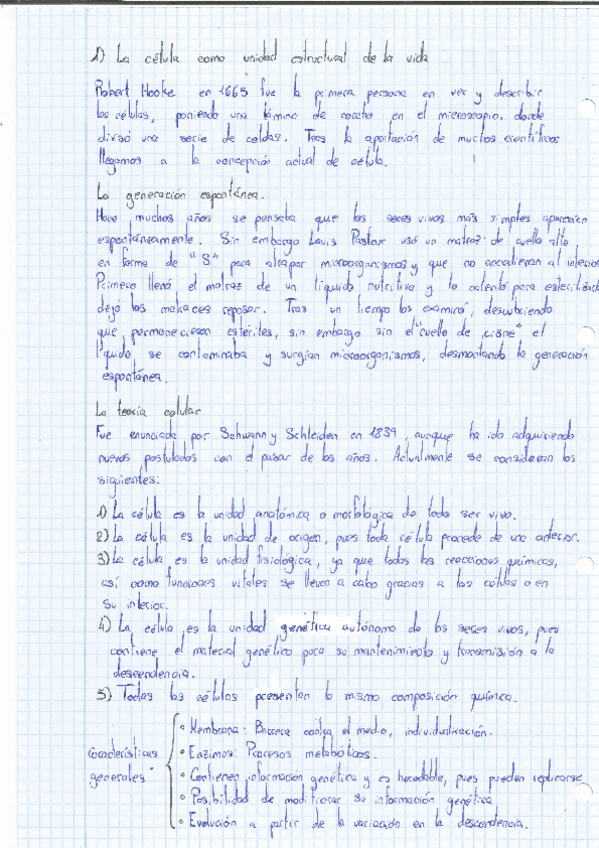 1) La célula como unidad estructural de la vida
Robert Hooke en 1665 fue la primera persona en ver y describir
las células, poniendo una lámina de corcho en el microscopio. donde
divisó una serie de celdas. Tras la aportación de muchos científicos
llegamos a la concepción actual de célula.
La generación espontánea.
Hace muchos años se pensaba que los seres vivos más simples aparecían
espontáneamente. Sin embargo Louis Pasteur usó un matraz de cuello alto
en forma de "S" para atrapar microorganismos y que no accedieran al interior
Primero llenó el matraz de un líquido nutritivo y lo calentó para esterilizarlo
dejó los matraces reposar. Tras un tiempo los examinó, descubriendo
que permanecieron estériles, sin embargo sin el "cuello de cisne" el
líquido se contaminaba y surgían microorganismos, desmontando la generación
espontánea.
La teoría celular
Fue enunciada por Schwann y Schleiden en 1839, aunque ha ido adquiriendo
nuevos postulados con el pasar de los años. Actualmente se consideran los
siguientes:
1) La célula es la unidad anatómica o morfológica de todo ser vivo.
2) La célula es la unidad de origen, pues toda célula procede de una anterior.
3) La célula es la unidad fisiológica, ya que todas las reacciones químicas,
así como funciones vitales se llevan a cabo gracias a las células o en
su interior.
4) La célula es la unidad genética autónoma de los seres vivos, pues
contiene el material genético para su mantenimiento y transmisión a la
descendencia.
5) Todas las células presentan la misma composición química.
Características generales
• Membrana: Barrera contra el medio, individualización.
• Enzimas: Procesos metabólicos.
• Contienen información genética y es heredable, pues pueden replicarse
• Posibilidad de modificar su información genética
• Evolución a partir de la variación en la descendencia.